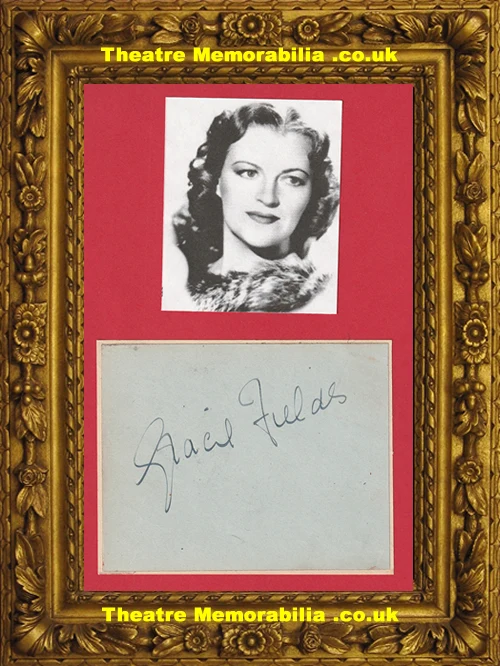 Theatre Memorabilia .co.uk
Gracie Fields
Theatre Memorabilia .co.uk